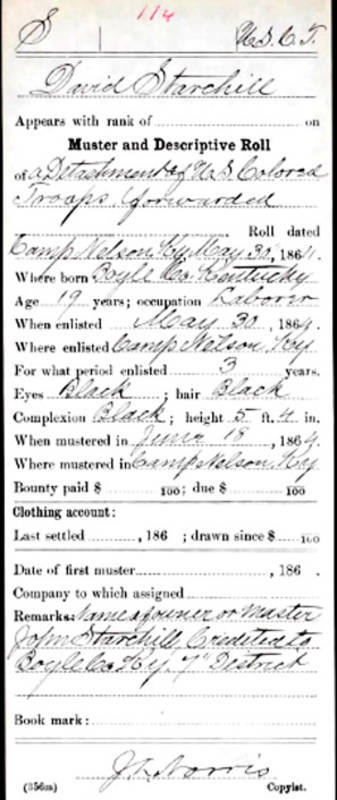 114
S U.S.C.T.
David Starchill
Appears with rank of on
Muster and Descriptive Roll
of a Detachment of U.S. Colored
Troops forwarded
Roll dated
Camp Nelson Ky May 30, 1864.
Where born Boyle Co. Kentucky
Age 19 years; occupation Laborer
When enlisted May 30, 1864.
Where enlisted Camp Nelson Ky
For what period enlisted 3 years.
Eyes Black; hair Black
Complexion Black; height 5 ft. 4 in.
When mustered in June 18, 1864.
Where mustered in Camp Nelson, Ky
Bounty paid $ 100; due $ 100
Clothing account:
Last settled , 186 ; drawn since $ 100
Date of first muster , 186 .
Company to which assigned
Remarks: Name of owner or Master
John Starchill, Credited to
Boyle Co Ky. 7" District
Book mark:
J. L. Norris
(356m) Copyist.